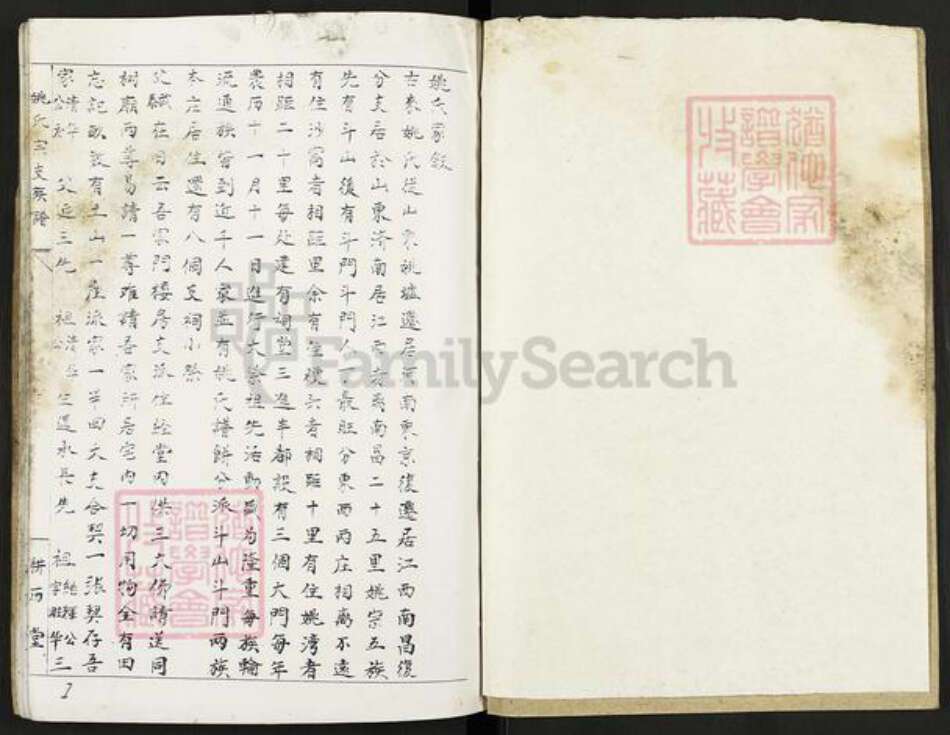 姚氏家叙
古來姚氏從山東姚墟遷居河南東京復遷居江西南昌復
分支居於山東濟南居江西省南昌二十五里姚宗五族
先有斗山後有斗門斗門人丁最旺分東西兩庄相离不遠
有住沙窩者相距里余有住樓六者相距十里有住姚湾者
相距二十里每处建有祠堂三進半都設有三個大門每年
農历十一月十一日進行大祭祖先活動最为隆重每族輪
流通族皆到近千人家並有姚氏譜餅分派斗山斗門兩族
本庄居住還有八個支祠小祭
父 在日云吾家門樓房支派住経堂内供三大佛請送同
树廟两尊易請一尊难請吾家所居宅内一切用物全有田
忘記畝数有土山一座派家一半四大支合契一張契存吾
家 父近三先 祖 遷永兵先 祖 公 字 華三
姚氏宗支族譜
餅西堂
1
猶他家譜學會收藏
猶他家譜學會收藏
FamilySearch